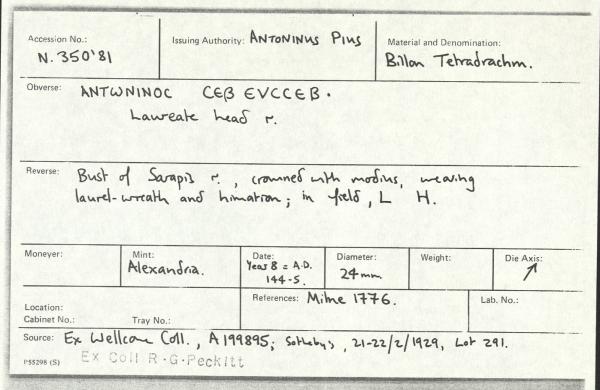 Accession No.:
N. 350'81
Issuing Authority: ANTONINUS PIUS
Material and Denomination:
Billon Tetradrachm.
Obverse: ANTWNINOC CEB EVCCEB.
Laureate head r.
Reverse: Bust of Sarapis r., crowned with modius, wearing
laurel-wreath and himation; in field, L H.
Moneyer:
Mint:
Alexandria.
Date:
Year 8 = A.D.
144-5.
Diameter:
24mm
Weight:
Die Axis:
↗
Location:
Cabinet No.: Tray No.:
References: Milne 1776.
Lab. No.:
Source: Ex Wellcome Coll., A199895; Sotheby's, 21-22/2/1929, Lot 291.
P55298 (S) Ex Coll R.G.Peckitt